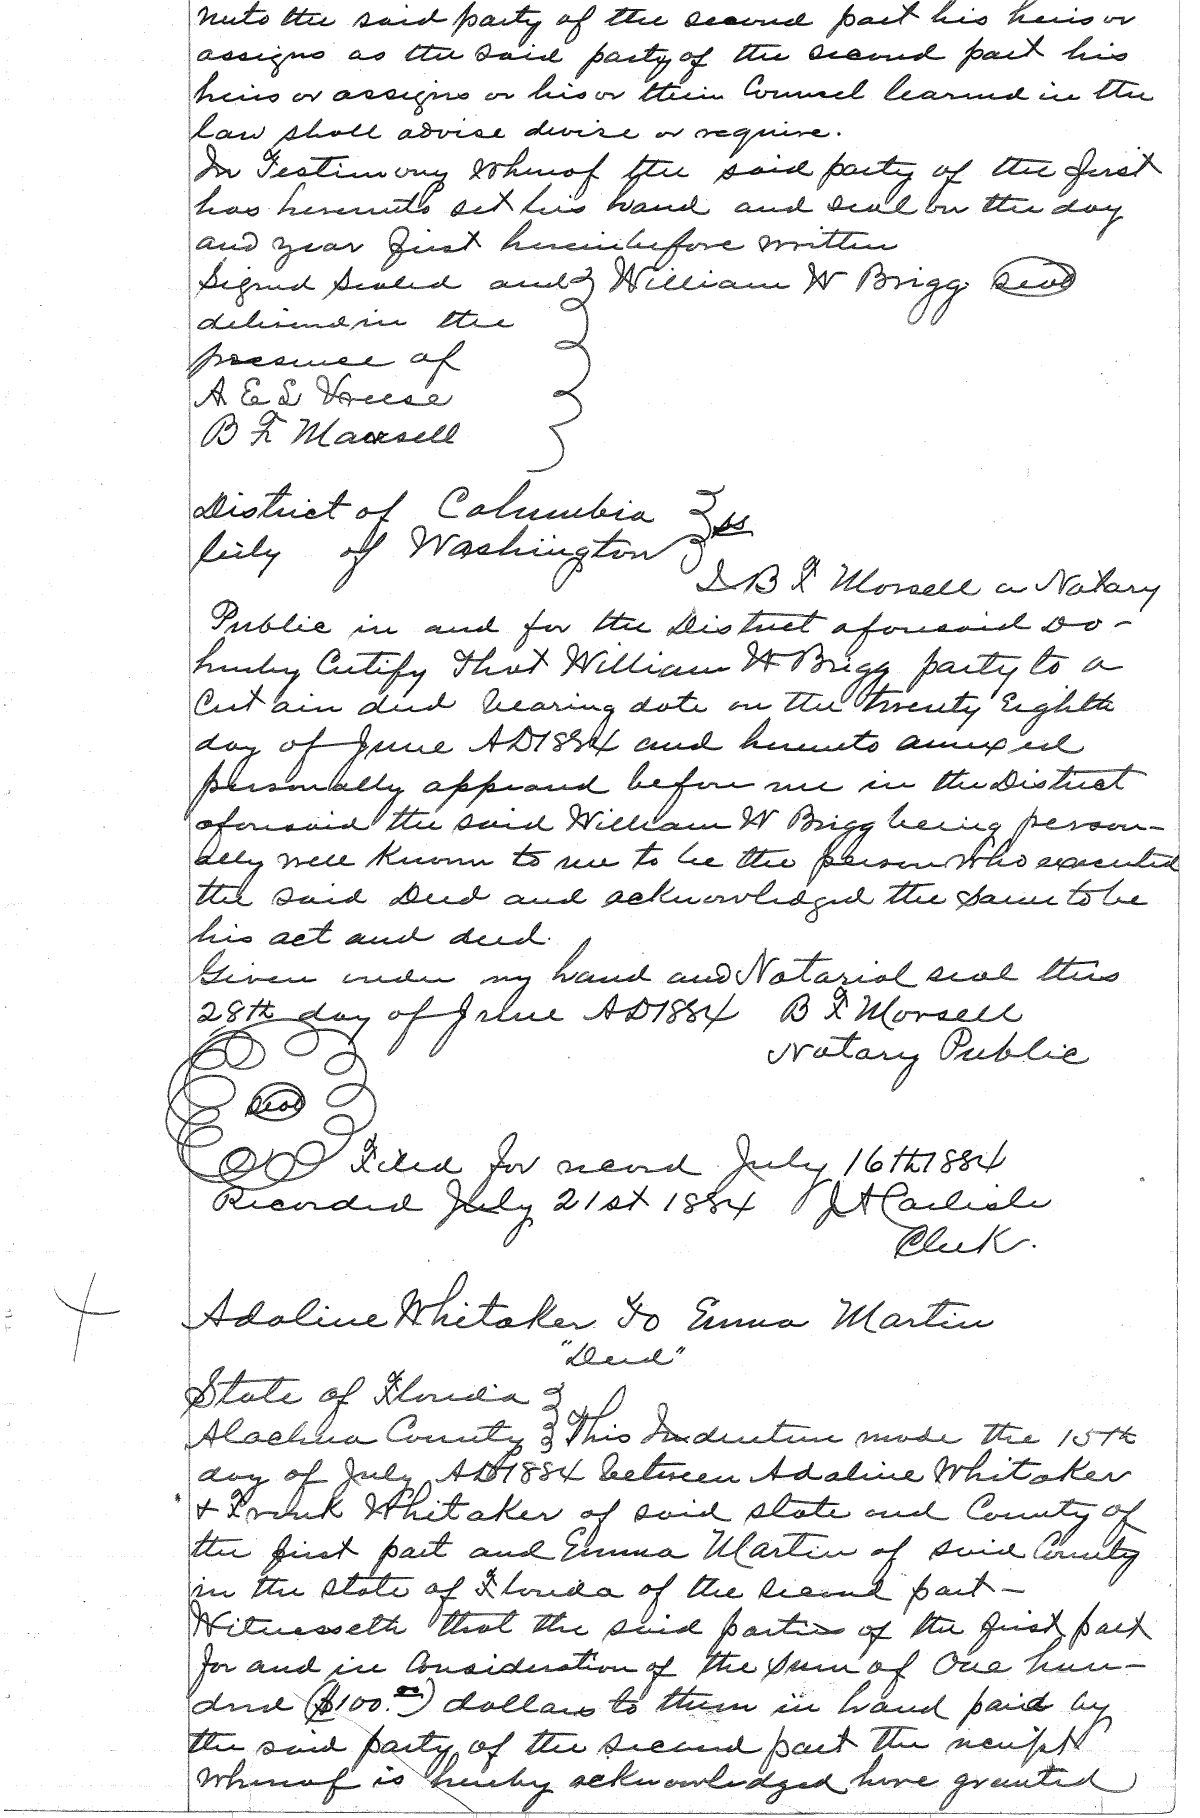 unto the said party of the second part his heirs or
assigns as the said party of the second part his
heirs or assigns or his or their Counsel learned in the
law shall advise devise or require.
In Testimony Whereof the said party of the first
has hereunto set his hand and seal on the day
and year first hereinbefore written
Signed Sealed and William W Brigg Seal
delivered in the
presence of
A E L Vreese
B F Maxsell
District of Columbia
City of Washington ss
I B F Morsell a Notary
Public in and for the District aforesaid Do-
hereby Certify That William W Brigg party to a
Certain deed bearing date on the twenty Eighth
day of June AD1884 and hereunto annexed
personally appeared before me in the District
aforesaid the said William W Brigg being person-
ally well Known to me to be the person Who executed
the said Deed and acknowledged the same to be
his act and deed.
Given under my hand and Notarial seal this
28th day of June AD1884 B F Morsell
Notary Public
Seal
Filed for record July 16th 1884
Recorded July 21st 1884 J A Carlisle
Clerk.
Adaline Whitaker To Emma Martin
"Deed"
State of Florida
Alachua County This Indenture made the 15th
day of July AD1884 between Adaline Whitaker
& Frank Whitaker of said state and County of
the first part and Emma Martin of said County
in the state of Florida of the second part-
Witnesseth that the said parties of the first part
for and in Consideration of the sum of One hun-
dred ($100.00) dollars to them in hand paid by
the said party of the second part the receipt
whereof is hereby acknowledged have granted